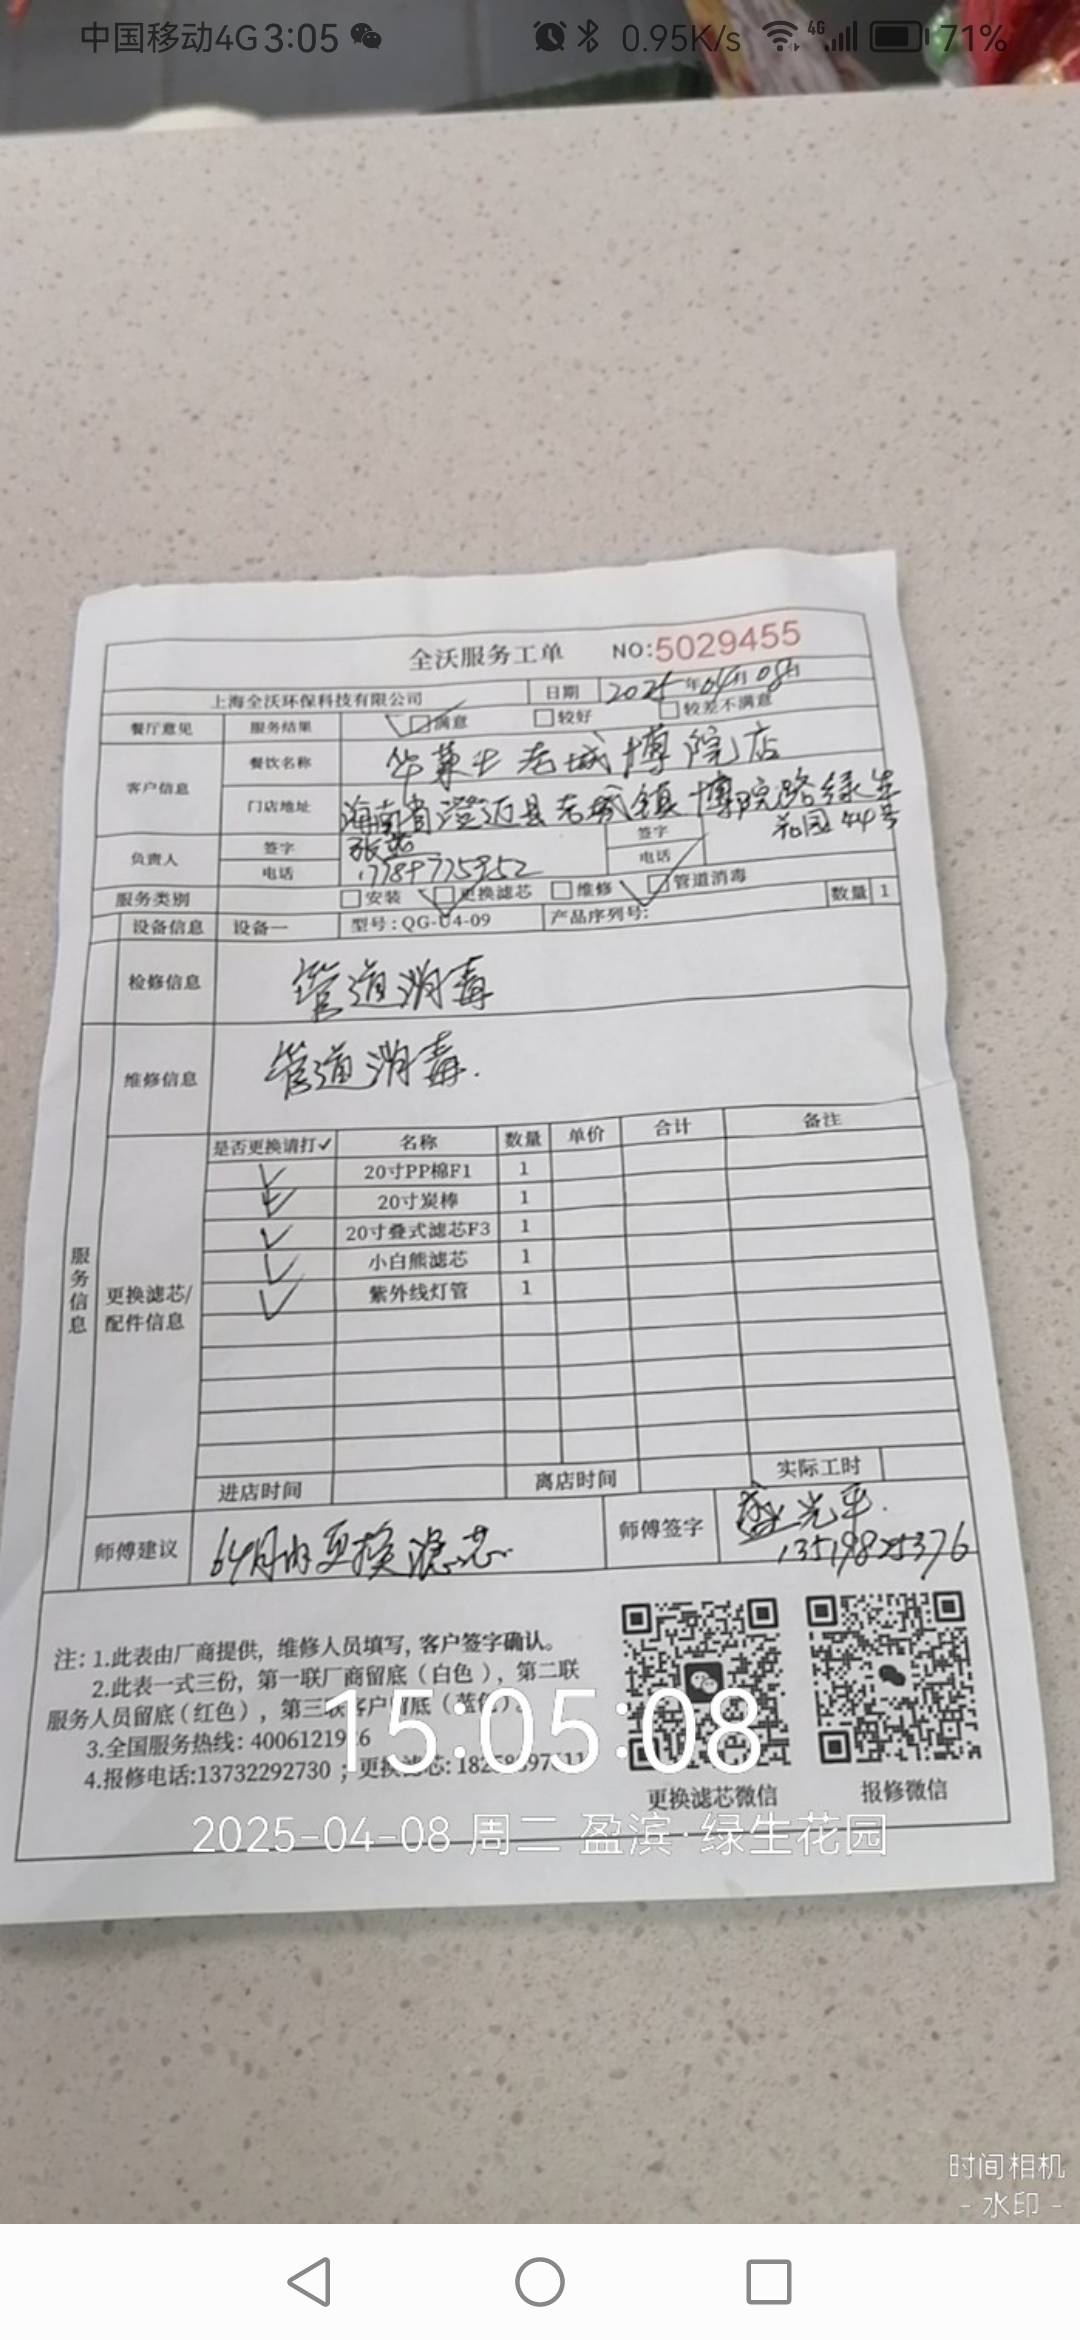 中国移动4G 3:05 0.95K/s 4G 71%
全沃服务工单 NO:5029455
上海全沃环保科技有限公司 日期 2025年04月08日
餐厅意见 服务结果 满意 较好 较差不满意
客户信息 餐饮名称 华莱士老城博院店
门店地址 海南省澄迈县老城镇博院路绿生
花园44号
负责人 签字 签字
电话 17784775952 电话
服务类别 安装 更换滤芯 维修 管道消毒 数量 1
设备信息 设备一 型号:QG-U4-09 产品序列号:
检修信息 管道消毒
维修信息 管道消毒.
服务信息
更换滤芯/配件信息
是否更换请打✓ 名称 数量 单价 合计 备注
✓ 20寸PP棉F1 1
✓ 20寸炭棒 1
✓ 20寸叠式滤芯F3 1
✓ 小白熊滤芯 1
✓ 紫外线灯管 1
进店时间 离店时间 实际工时
师傅建议 月内更换滤芯 师傅签字 盛光平.
13519825376
注:1.此表由厂商提供,维修人员填写,客户签字确认。
2.此表一式三份,第一联厂商留底(白色),第二联
服务人员留底(红色),第三联客户留底(蓝色)。
3.全国服务热线:
4.报修电话:13732292730 ;更换滤芯:
更换滤芯微信 报修微信
15:05:08
2025-04-08 周二 盈滨·绿生花园
时间相机
- 水印 -